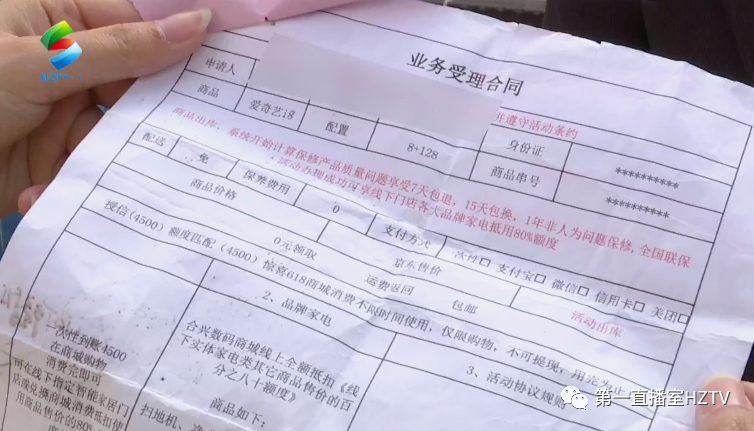 业务受理合同
申请人
并遵守活动条约
商品
爱奇艺i8
配置
8+128
身份证
**********
商品串号
**********
商品出库，系统开始计算保修产品质量问题享受7天包退，15天包换，1年非人为问题保修，全国联保
活动办理成功可享线下门店各大品牌家电抵用80%额度
配送
免
保养费用
0
支付方式
支付宝□ 微信□ 信用卡□ 美团□
商品价格
0元领取
京东售价
运费返回
包邮
活动出库
授信（4500）额度匹配（4500）惊喜618商城消费不限时间使用，仅限购物，不可提现，用完为止
2、品牌家电
3、活动协议规则
一次性到账4500
在商城购物
消费完即可
可在线下指定智能家居门
店或兑换商城消费抵扣使
用商品售价的80%
合兴数码商城线上全额抵扣《线
下实体家电类其它商品售价的百
分之八十额度》
商品如下：
第一直播室HZTV